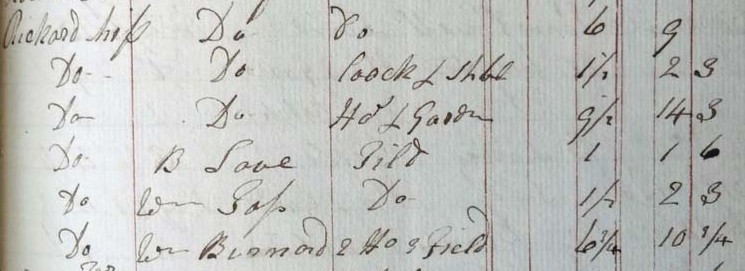 Richard Do Do 6 9
Do Do & Shd 1½ 2 3
Do Do Ho & Garden 9½ 14 3
Do B Love Fild 1 1 6
Do Wm Goss Do 1½ 2 3
Do Wm Burnard 2 Ho 3 Field 6¾ 10